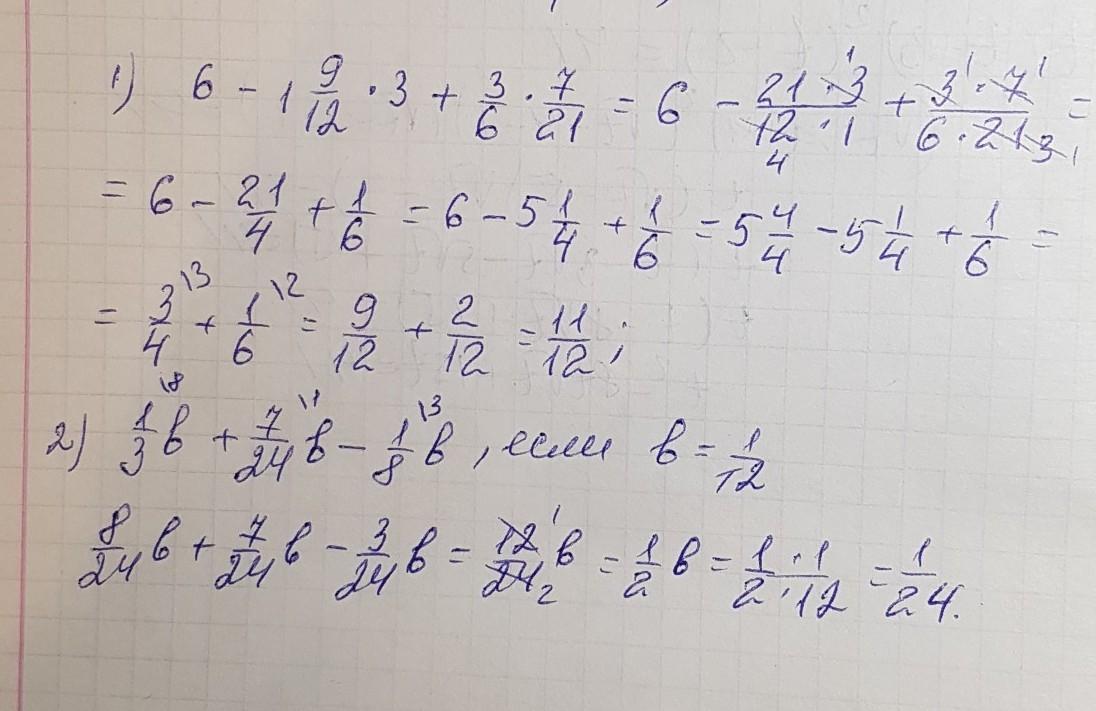 1) 6 - 1 9/12 · 3 + 3/6 · 7/21 = 6 - (21 · 3)/(12 · 1) + (3 · 7)/(6 · 21) =
= 6 - 21/4 + 1/6 = 6 - 5 1/4 + 1/6 = 5 4/4 - 5 1/4 + 1/6 =
= 3/4 \3 + 1/6 \2 = 9/12 + 2/12 = 11/12 ;
2) 1/3 \8 в + 7/24 \1 в - 1/8 \3 в , если в = 1/12
8/24 в + 7/24 в - 3/24 в = 12/24 в = 1/2 в = (1 · 1)/(2 · 12) = 1/24.